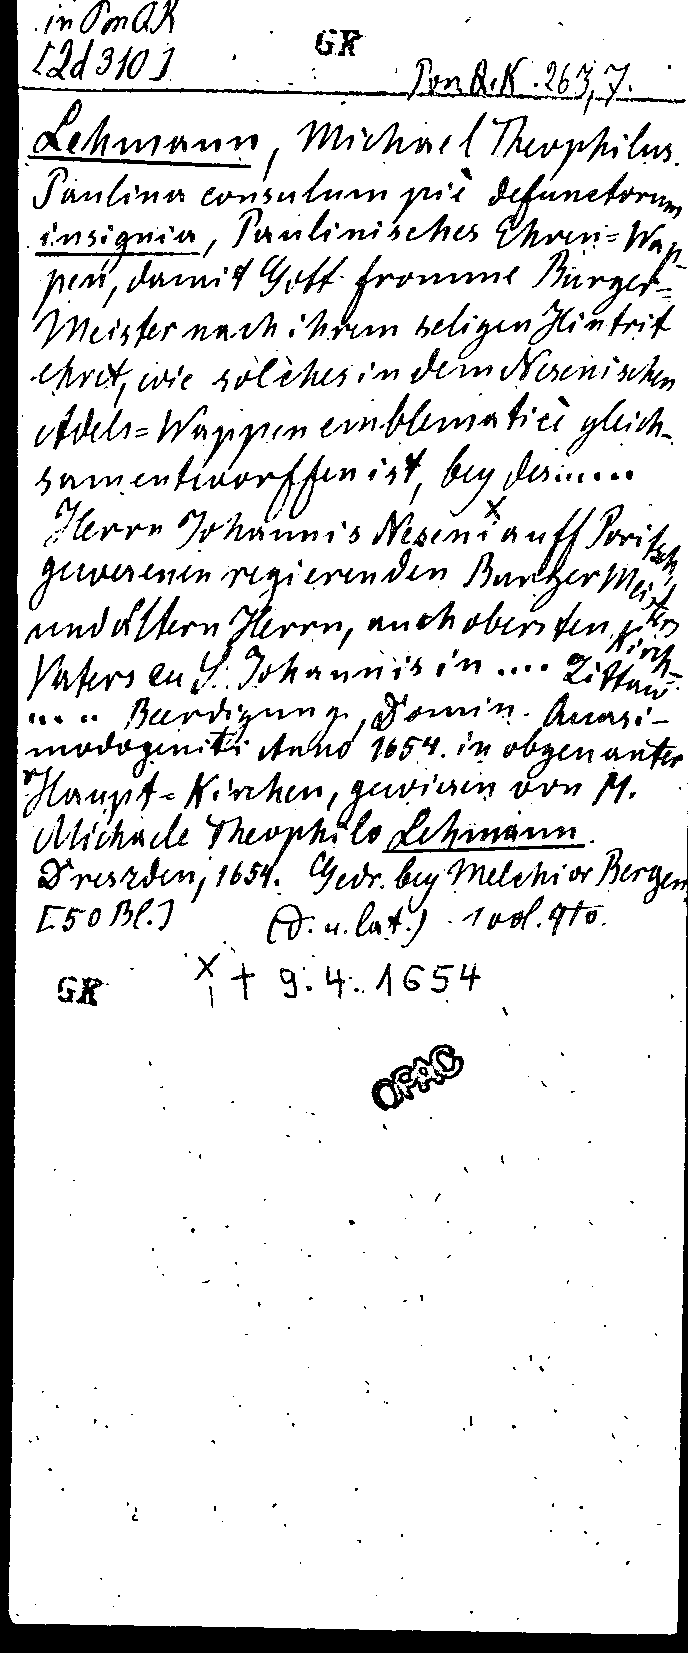 in Pon QK
[2d 310]
GK
Pon Q.K. 263,7.
Lehmann, Michael Theophilus.
Paulina consulum piè defunctorum
insignia, Paulinisches Ehren=Wap-
pen, damit Gott fromme Bürger=
Meister nach ihrem seligen Hintrit
ehret, wie solches in dem Nesenischen
Adels=Wappen emblematicè gleich-
sam entworffen ist, bey des.....
Herrn Johannis Neseni x auff Poritsch,
gewesenen regierenden BurgerMeisters
und ältern Herrn, auch obersten Kirch-
Vaters zu S. Johannis in .... Zittau
.... Beerdigung, Domin. Quasi-
modogeniti Anno 1654. in obgenanter
Haupt=Kirchen, gewiesen von M.
Michaele Theophilo Lehmann.
Dreszden, 1654. Gedr. bey Melchior Bergen
[50 Bl.] (d. u. lat.) 1 vol. 4to.
GK
x + 9.4.1654
OPAC